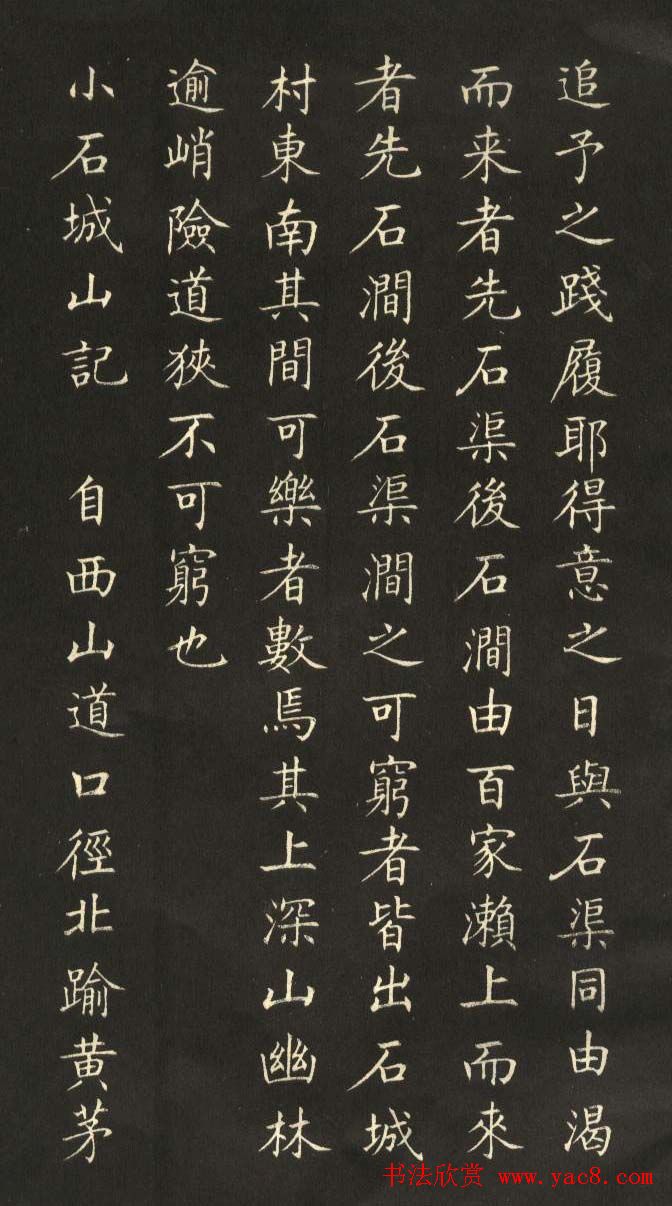 追予之踐履耶得意之日與石渠同由渴
而来者先石渠後石澗由百家瀨上而來
者先石澗後石渠澗之可窮者皆出石城
村東南其間可樂者數焉其上深山幽林
逾峭險道狹不可窮也
小石城山記　自西山道口徑北踰黄茅
书法欣赏 www.yac8.com